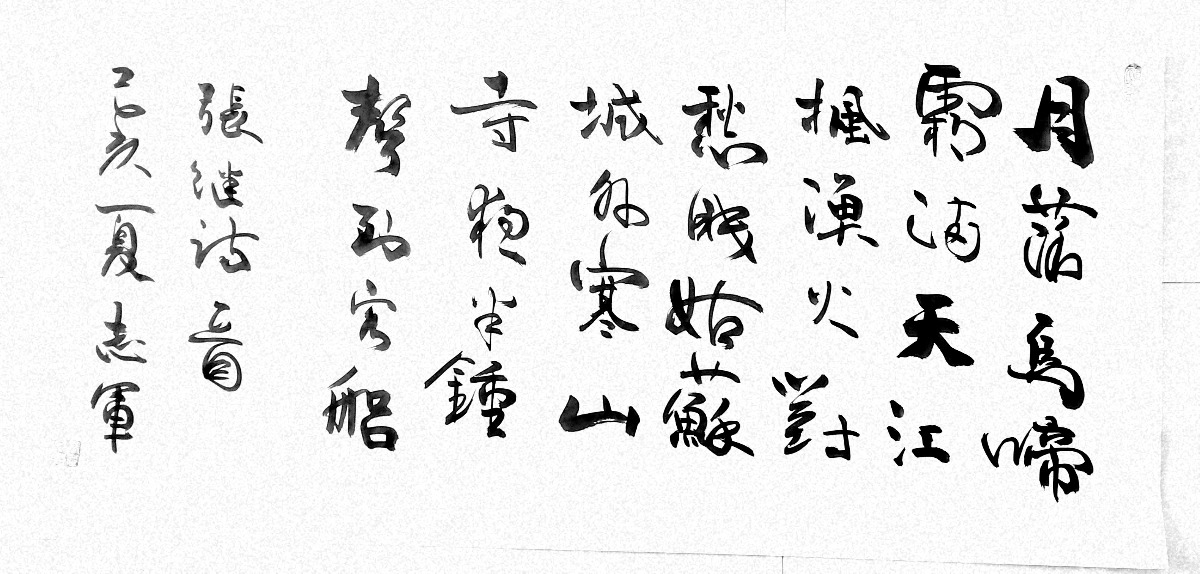 月落烏啼
霜滿天江
楓漁火對
愁眠姑蘇
城外寒山
寺夜半鍾
聲到客船
張继诗一首
己亥夏志軍